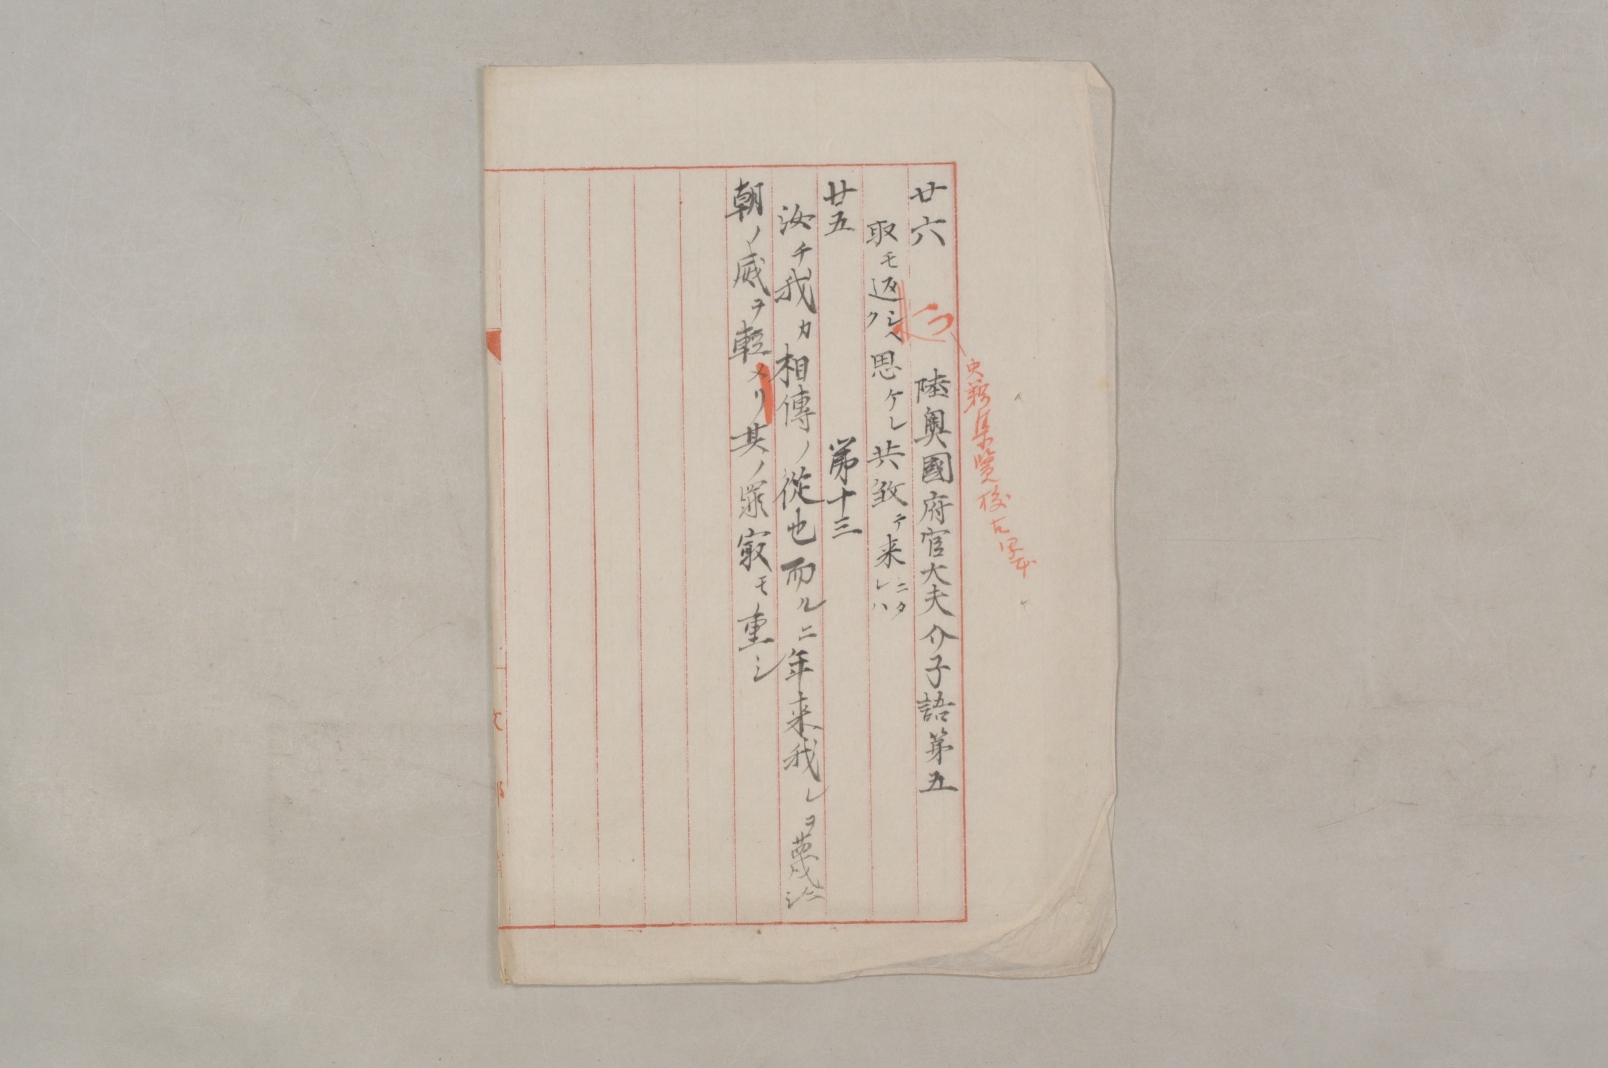 史籍集覧校古写本
廿六 陸奥國府官大夫介子語第五
取モ返シヘク思ケレ共致テ来ニタレハ
廿五 第十三
汝チ我カ相傳ノ従也而ルニ年来我レヲ蔑ニシ
朝ノ威ヲ軽メリ其ノ罪寂モ重シ
文 部 省